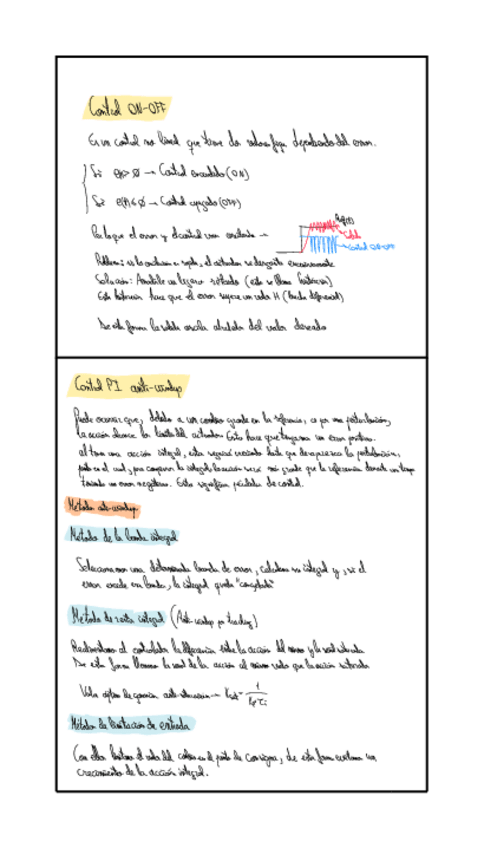 Control ON-OFF
Es un control no lineal que tiene dos valores fijos dependiendo del error.
Si e(t)>0 → Control encendido (ON)
Si e(t)≤0 → Control apagado (OFF)
Por lo que el error y el control van oscilando →
Ref(t)
Salida
Control ON-OFF
Problema: si la oscilación es rápida, el actuador se desgasta excesivamente
Solución: Añadirle un ligero retardo (esto se llama histéresis)
Esta histéresis hace que el error supere un valor H (banda diferencial)
De esta forma la salida oscila alrededor del valor deseado
Control PI anti-windup
Puede ocurrir que, debido a un cambio grande en la referencia, o por una perturbación,
la acción alcance los límites del actuador. Esto hace que tengamos un error positivo.
al tener una acción integral, esta seguirá creciendo hasta que desaparezca la perturbación,
punto en el cual, para compensar la integral, la acción será más grande que la referencia durante un tiempo
teniendo un error negativo. Esto significa pérdida de control.
Métodos anti-windup
Método de la banda integral
Seleccionamos una determinada banda de error, calculamos su integral y, si el
error excede esa banda, la integral queda "congelada"
Método de resta integral (Anti-windup por tracking)
Realimentamos al controlador la diferencia entre la acción del mismo y la real saturada
De esta forma llevamos la señal de la acción al mismo valor que la acción saturada
Valor óptimo de ganancia anti-saturación → = 1 / Kp τi
Métodos de limitación de entrada
Con ellos limitamos el valor del cambio en el punto de consigna, de esta forma evitamos un
crecimiento de la acción integral.